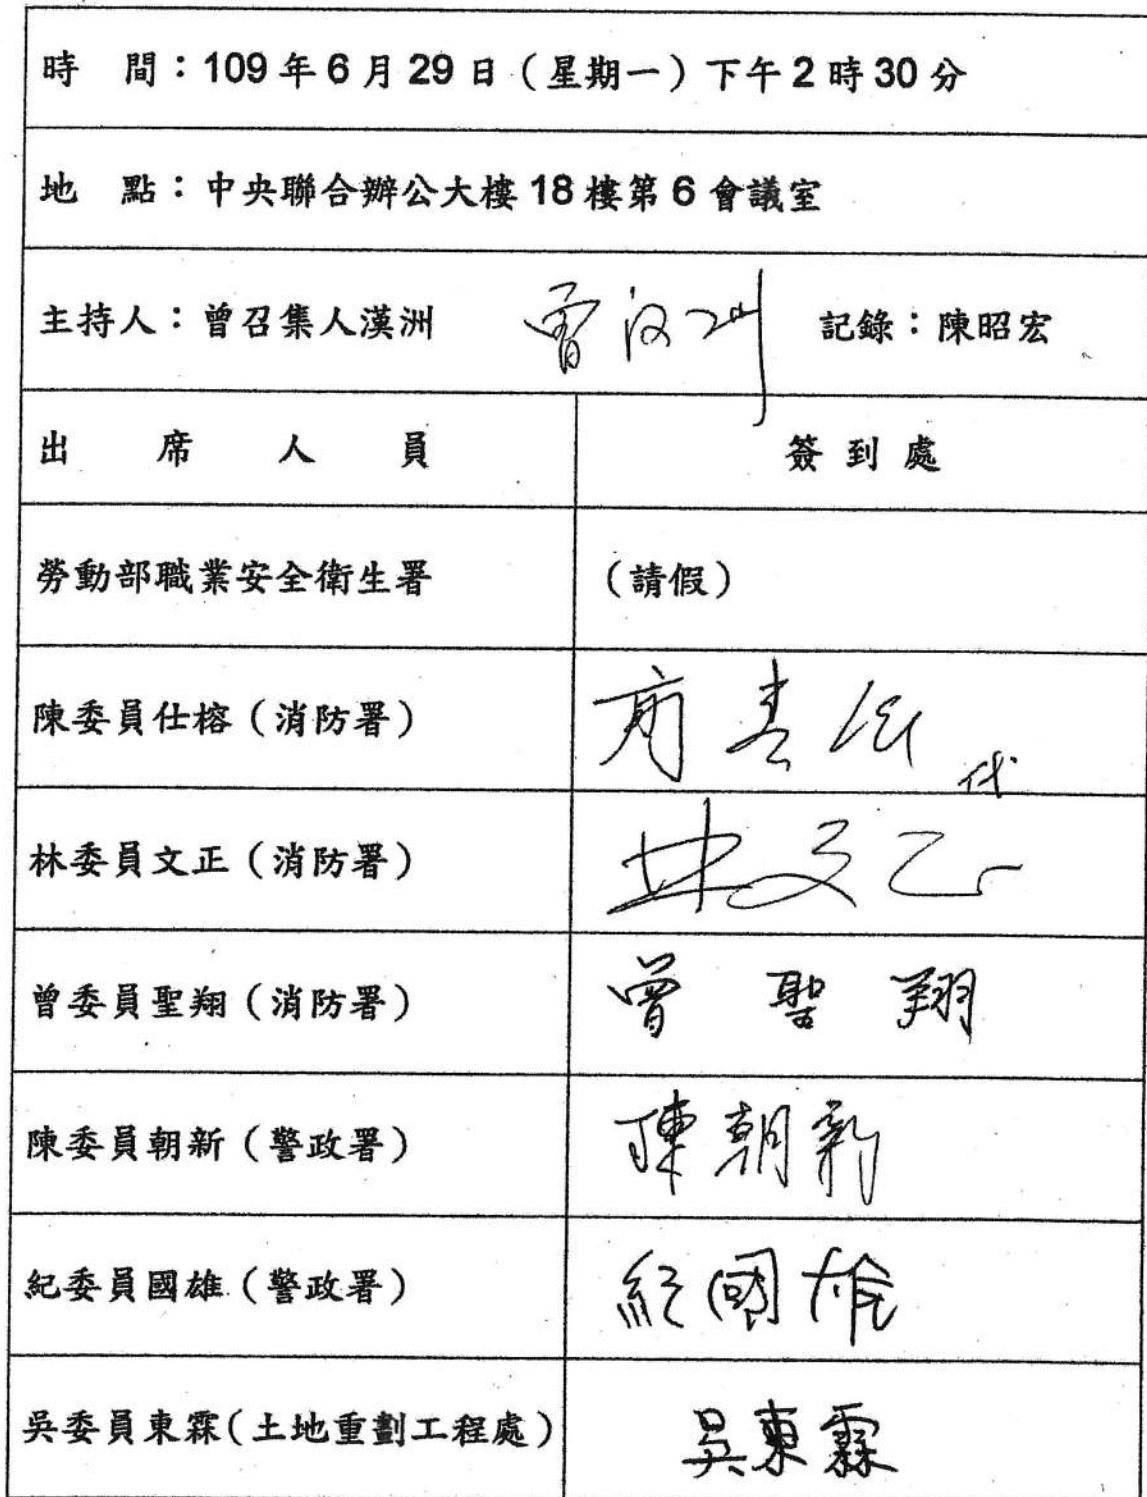 時　間：109年6月29日（星期一）下午2時30分
地　點：中央聯合辦公大樓18樓第6會議室
主持人：曾召集人漢洲　曾漢洲　記錄：陳昭宏
出　席　人　員　簽到處
勞動部職業安全衛生署　（請假）
陳委員仕榕（消防署）　代
林委員文正（消防署）　林文正
曾委員聖翔（消防署）　曾聖翔
陳委員朝新（警政署）　陳朝新
紀委員國雄（警政署）　紀國雄
吳委員東霖（土地重劃工程處）　吳東霖